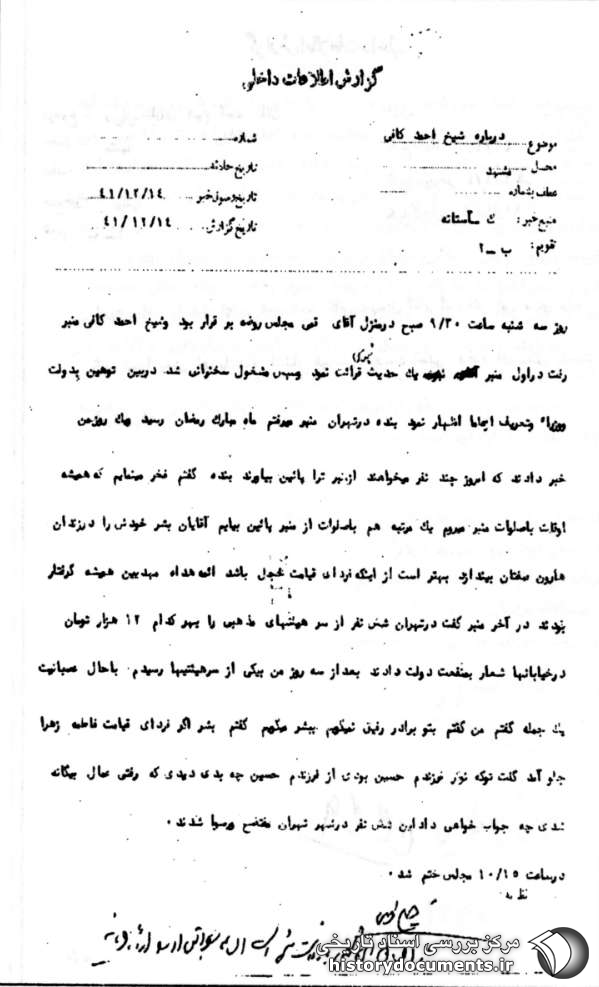 گزارش اطلاعات داخلی
موضوع درباره شیخ احمد کافی شماره
محل مشهد تاریخ حادثه
عطف بشماره تاریخ وصول خبر ۴۱/۱۲/۱۴
منبع خبر: ک ـ آستانه تاریخ گزارش ۴۱/۱۲/۱۴
تقویم: ب ـ ۲
روز سه شنبه ساعت ۹/۳۰ صبح درمنزل آقای قمی مجلس روضه بر قرار بود وشیخ احمد کافی منبر
رفت دراول منبر یک حدیث قرائت نمود وسپس مشغول سخنرانی شد دربین توهین بدولت
ووزراء وتحریف ایجابا اظهار نمود بنده درتهران منبر میرفتم ماه مبارک رمضان رسید ویک روزمن
خبر دادند که امروز چند نفر میخواهند ازمنبر ترا پائین بیاورند بنده گفتم فخر مینمایم که همیشه
اوقات باصلوات منبر میروم یک مرتبه هم باصلوات از منبر پائین بیایم آقایان بشر خودش را درزندان
هارون صفتان بیندازد بهتر است از اینکه فردای قیامت خجل باشد ائمه هداه مهدیین همیشه گرفتار
بودند در آخر منبر گفت درتهران شش نفر از سر هیئتهای مذهبی را بهر کدام ۱۲ هزار تومان
درخیابانها شعار بمنفعت دولت دادند بعداز سه روز من بیکی از سرهیئتیها رسیدم باحال عصبانیت
یک جمله گفتم من گفتم بتو برادر رفیق نمیگویم بیشر میگویم گفتم بشر اگر فردای قیامت فاطمه زهرا
جلو آمد گفت توکه نوکر فرزندم حسین بودی از فرزندم حسین چه بدی دیدی که رفتی عمال بیگانه
شدی چه جواب خواهی داد این شش نفر درشهر تهران مفتضح ورسوا شدند .
درساعت ۱۰/۱۵ مجلس ختم شد .
نظریه
مرکز بررسی اسناد تاریخی
historydocuments.ir